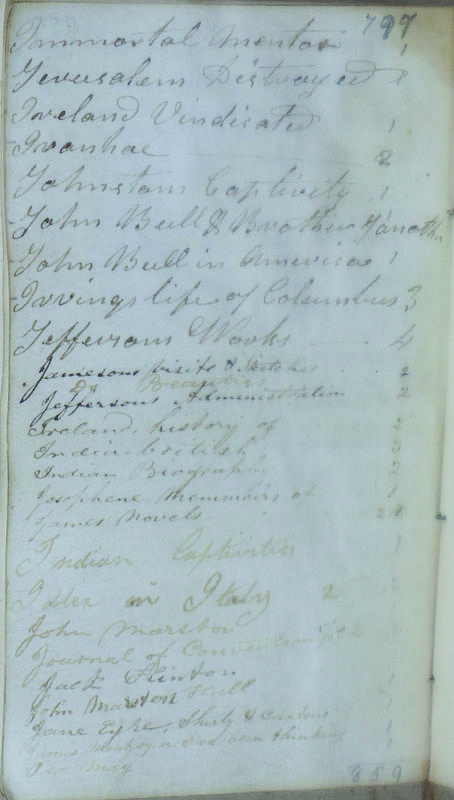 797
Immortal Mentor 1
Jerusalem Distroyed
Ireland Vindicated 1
Ivanhoe 2
Johnstons Captivity 1
John Bull & Brother Jonath.
John Bull in America 1
Irvings life of Columbus 3
Jeffersons Works 4
Jamesons Visits & Sketches 2
Do Beauties
Jeffersons Administration 2
Ireland, history of 2
India british 3
Indian Biography 2
Josephene Memmoirs of 1
James Novels
Indian Captivities 1
Idler in Italy 2
John Marston
Journal of Convention
Jack Hinton
John Marston Hall
Jane Eyre, Shirly & Caxtons
I've been thinking
859